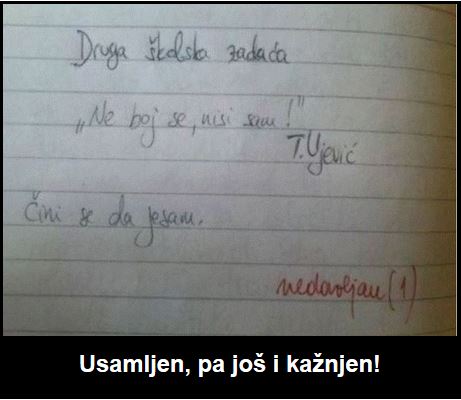 Druga školska zadaća
„Ne boj se, nisi sam!"
T. Ujević
Čini se da jesam.
nedovoljan (1)
Usamljen, pa još i kažnjen!